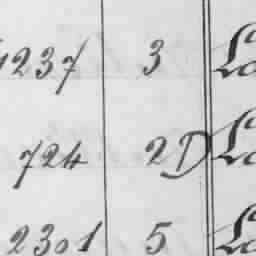 1237 3 Lo
724 2D Lo
2301 5 Lo